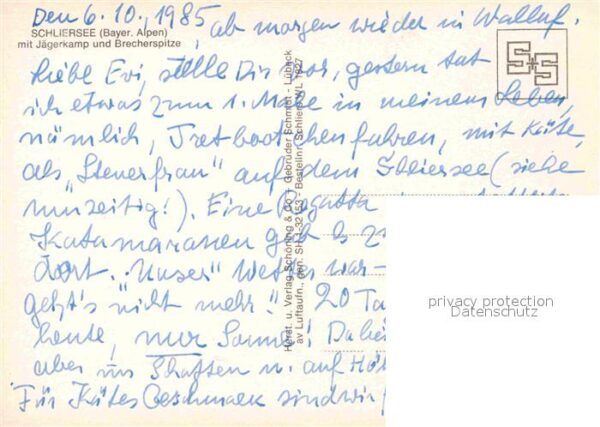 Den 6.10.1985, ab morgen wieder in Walluf.
SCHLIERSEE (Bayer. Alpen)
mit Jägerkamp und Brecherspitze
S+S
Liebe Evi, stelle Dir vor, gestern tat
ich etwas zum 1. Male in meinem Leben,
nämlich, Tretbootchenfahren, mit Käte,
als "Steuerfrau" auf dem Schliersee (siehe
!). Eine Regatta
Katamaranen gab es
dort. "Unser" Wetter war -
jetzt's nicht mehr! 20 Ta
heute, nur Sonne! Dabei
aber im Schatten u. auf Höh
Für Kätes Geschmack sind wir
Herst. u. Verlag Schöning & Co + Gebrüder Schmidt - Lübeck
av Luftaufn., gen. SH 1-32153 - Bestellnr. Schliers NL 1827
privacy protection
Datenschutz